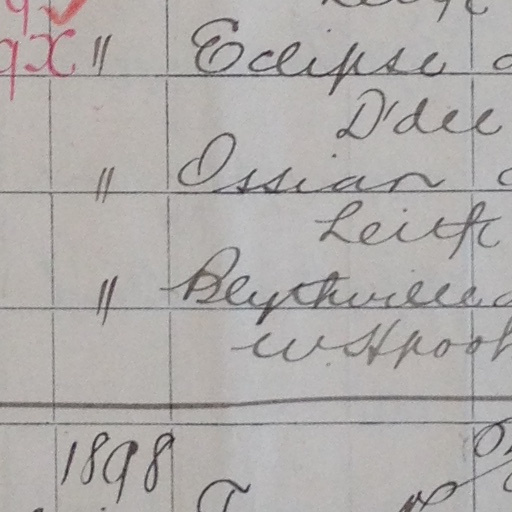 Leith
" Eclipse
D'dee
" Ossian
Leith
" Blythville
W. Hpool
1898